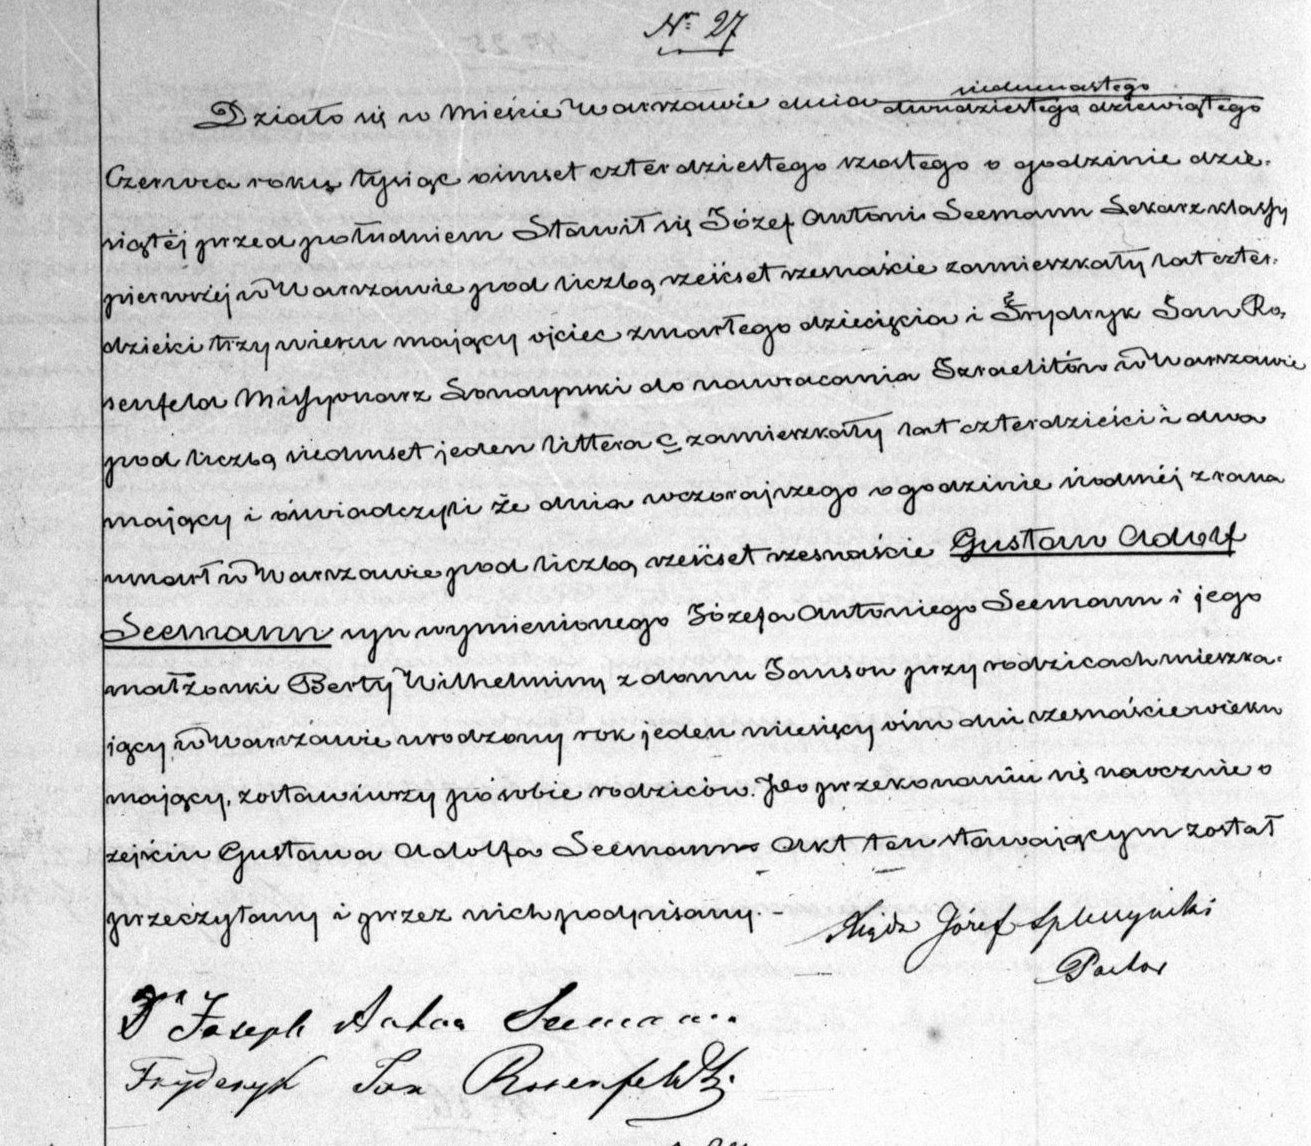 Nr 27
Działo się w Mieście Warszawie dnia siedmnastego / dwudziestego dziewiątego
Czerwca roku tysiąc ośmset czterdziestego szóstego o godzinie dzie-
siątéj przed południem Stawił się Józef Antoni Seemann Lekarz klassy
pierwszéj w Warszawie pod liczbą sześćset szesnaście zamieszkały lat czter-
dzieści trzy wieku mający ojciec zmarłego dziecięcia i Frydryk Jan Ro-
senfeld Missyonarz Londynski do nawracania Izraelitów w Warszawie
pod liczbą siedmset jeden littera C zamieszkały lat czterdzieści i dwa
mający i oświadczyli że dnia wczorajszego o godzinie siódméj z rana
umarł w Warszawie pod liczbą sześćset szesnaście Gustaw Adolf
Seemann syn wymienionego Józefa Antoniego Seemann i jego
małżonki Berty Wilhelminy z domu Janson przy rodzicach mieszka-
jący, w Warszawie urodzony rok jeden miesięcy ośm dni szesnaście wieku
mający, zostawiwszy po sobie rodziców. Po przekonaniu się naocznie o
zejściu Gustawa Adolfa Seemann Akt ten stawającym został
przeczytany i przez nich podpisany. –
Xiądz Józef
Pastor
Dr Joseph Anton Seemann.
Fryderyk Jan Rosenfeldt.